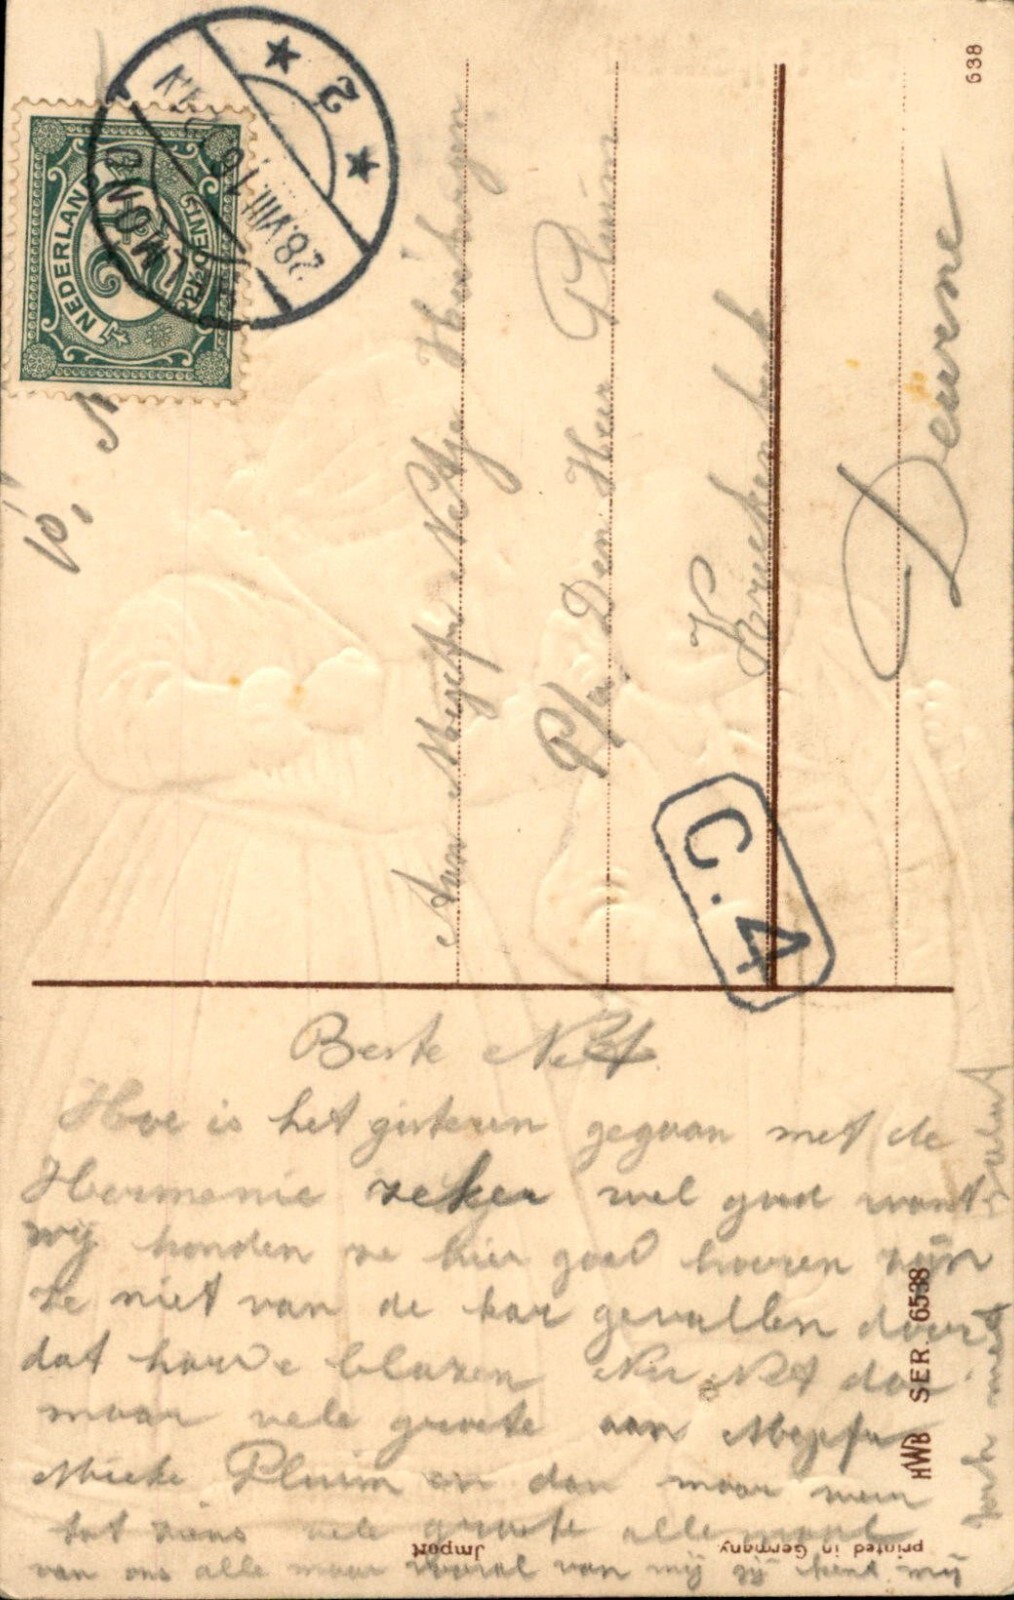 638
NEDERLAND
2½ CENT
HELMOND
28.VIII.16
2
Aan Mejefr Netje Herbergen
P/a, Den Heer Pluim
Kriekenbeek
Deurne
C.4
Beste Net
Hoe is het gisteren gegaan met de
Hermenie zeker wel goed want
wij konden ze hier goed hooren zijn
ze niet van de kar gevallen door
dat harde blazen Nu Net doe
maar vele groete aan Mejefr
Mieke Pluim en dan maar weer
tot ziens vele groete allemaal
van ons alle maar vooral van mij gij kent mij
toch met
Salut
HWB SER. 6538
Jmport
printed in Germany